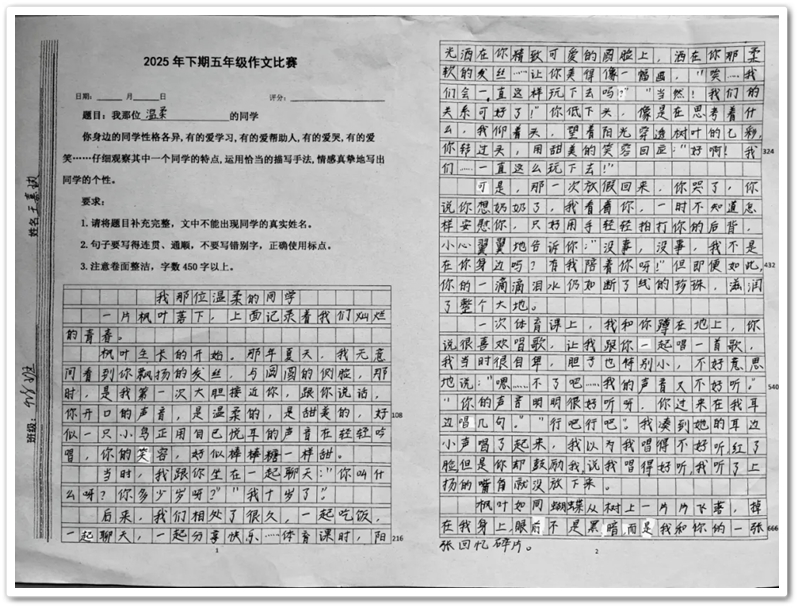 2025年下期五年级作文比赛
日期：______月____日 评分：
题目：我那位 温柔 的同学
你身边的同学性格各异,有的爱学习,有的爱帮助人,有的爱哭,有的爱
笑……仔细观察其中一个同学的特点,运用恰当的描写手法,情感真挚地写出
同学的个性。
要求：
1.请将题目补充完整，文中不能出现同学的真实姓名。
2.句子要写得连贯、通顺，不要写错别字，正确使用标点。
3.注意卷面整洁，字数450字以上。
姓名
班级：
我那位温柔的同学
一片枫叶落下，上面记录着我们灿烂
的青春。
枫叶生长的开始。那年夏天，我无意
间看到你飘扬的发丝，与圆圆的侧脸，那
时，是我第一次大胆接近你，跟你说话，
你开口的声音，是温柔的，是甜美的，好 108
似一只小鸟正用自己悦耳的声音在轻轻吟
唱，你的笑容，好似棒棒糖一样甜。
当时，我跟你坐在一起聊天：“你叫什
么呀？你多少岁呀？”“我十岁了。”
后来，我们相处了很久，一起吃饭，
一起聊天，一起分享快乐……体育课时，阳 216
1
光洒在你精致可爱的圆脸上，洒在你那柔
软的发丝……让你美得像一幅画，“笑…我
们会一直这样玩下去吗？”“当然！我们的
关系可好了！”你低下头，像是在思考着什
么，我仰着头，望着阳光穿透树叶的七彩，
你转过头，用甜美的笑容回应：“好啊！我 324
们……一直这么玩下去！”
可是，那一次放假回来，你哭了，你
说你想奶奶了，我看着你，一时不知道怎
样安慰你，只好用手轻轻拍打你的后背，
小心翼翼地告诉你：“没事，没事，我不是
在你身边吗？有我陪着你呀！”但即便如此， 432
你的一滴滴泪水仍如断了线的珍珠，滋润
了整个大地。
一次体育课上，我和你蹲在地上，你
说很喜欢唱歌，让我跟你一起唱一首歌，
我当时很自卑，胆子也特别小，不好意思
地说：“嗯……不了吧……我的声音又不好听。” 540
“你的声音明明很好听呀，你过来在我耳
边唱几句。”“行吧行吧”。我凑到她的耳边
小声唱了起来，我以为我唱得不好听,红了
脸但是你却鼓励我说我唱得好听,我听了上
扬的嘴角就没放下来。
枫叶如同蝴蝶从树上一片片飞落，掉
在我身上,眼后不是黑暗而是我和你的一张 666
张回忆碎片。
2